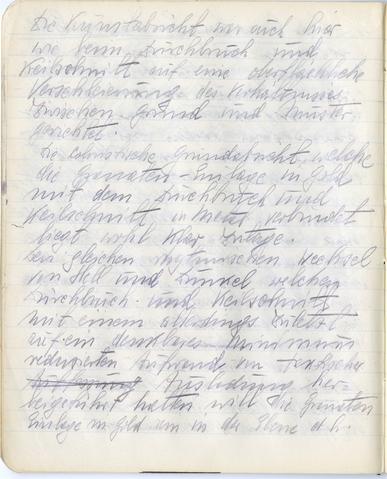 Die Kunstabsicht war auch hier
wie beim Durchbruch und
Keilschnitt auf eine oberflächliche
Verschleierung des Verhältnisses
zwischen Grund und Muster
gerichtet.
Die coloristische Grundabsicht, welche
die Granaten-Einlage in Gold
mit dem Durchbruch und
Keilschnitt verbindet
liegt wohl klar zutage.
Den gleichen rhytmischen Wechsel
von Hell und Dunkel welchen
Durchbruch- und Keilschnitt
mit einem allerdings zuletzt
auf ein denkbares Minimum
reduzierten Aufwande an
Ausladung her-
beigeführt hatten will die Granaten
Einlage in Gold nun in der Ebene d.h.